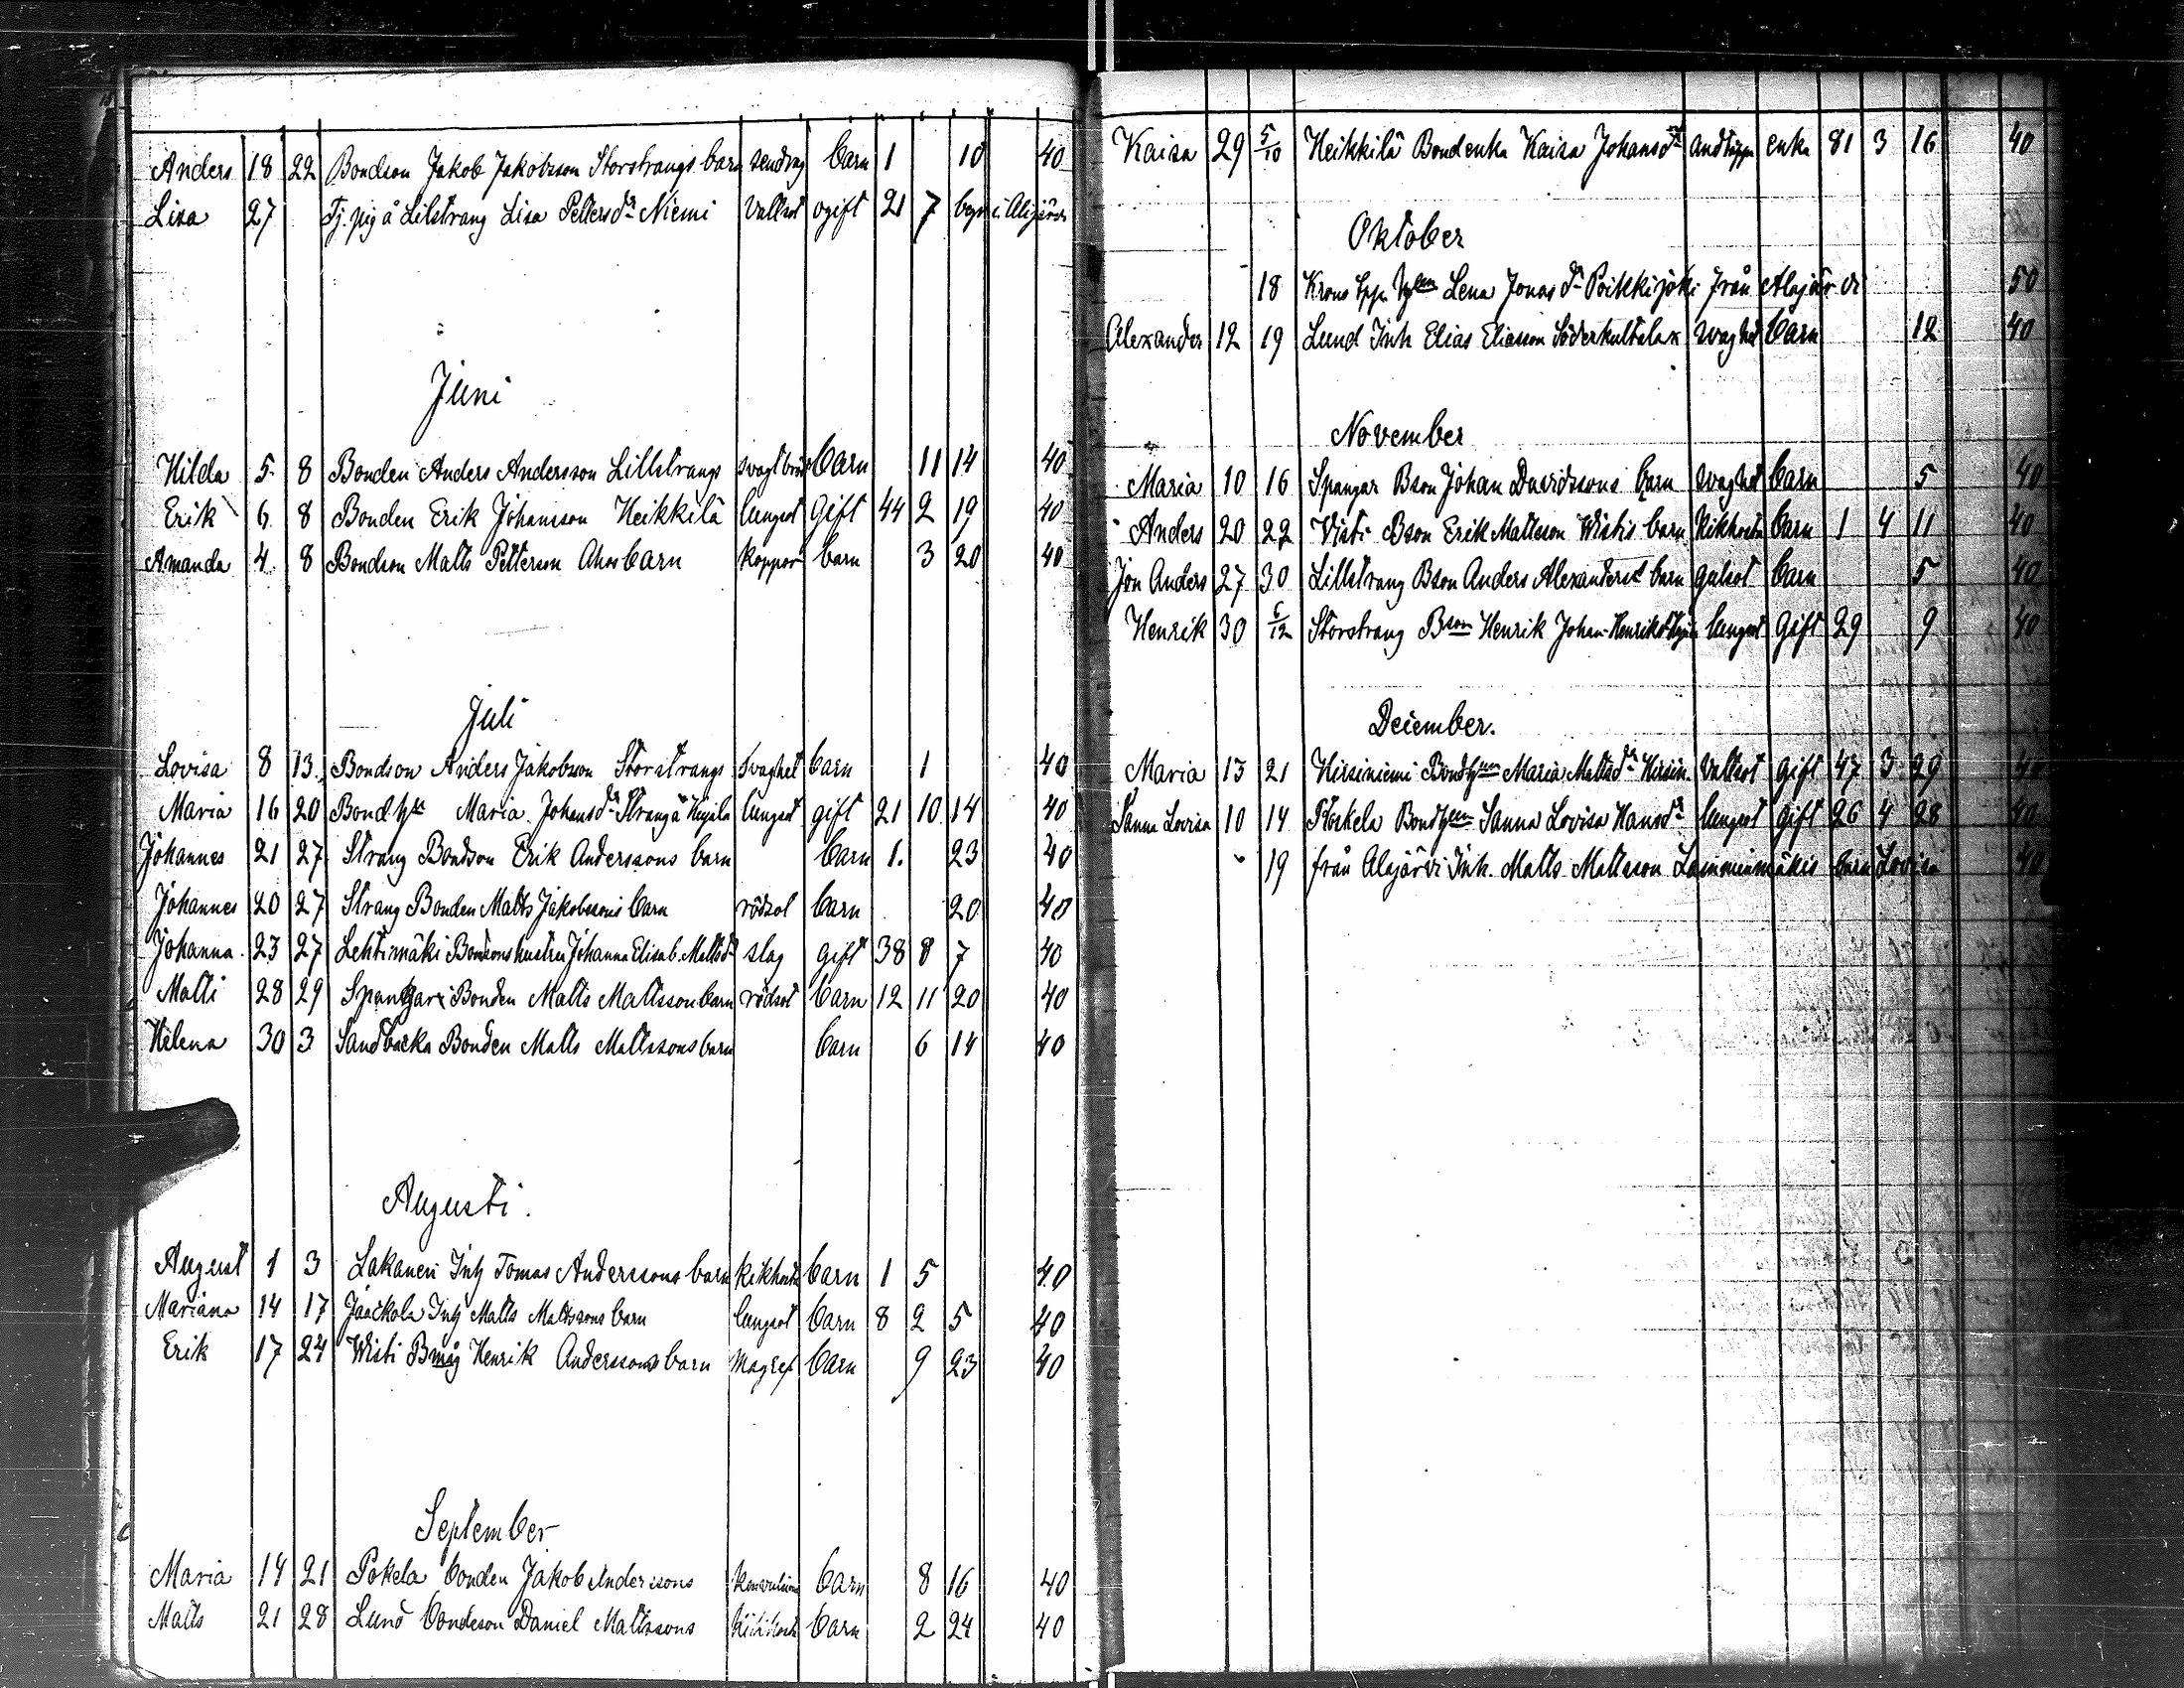 Anders 18 22 Bondson Jakob Jakobsson Storstrangs barn sendrag barn 1 10 40
Lisa 27 Tj. pig å Lilstrang Lisa Petters dr Niemi Vattsot ogift 21 7 i Alajärvi
Juni
Hilda 5 8 Bonden Anders Andersson Lillstrangs barn 11 14 40
Erik 6 8 Bonden Erik Johansson Heikkilä lungsot Gift 44 2 19 40
Amanda 4 8 Bondson Matts Petterson Ahos barn koppor barn 3 20 40
Juli
Lovisa 8 13 Bondson Anders Jakobsson Storstrangs Svaghet barn 1 40
Maria 16 20 Bond Maria Johans dr Strang å lungsot gift 21 10 14 40
Johannes 21 27 Strang Bondson Erik Anderssons barn barn 1. 23 40
Johannes 20 27 Strang Bonden Matts Jakobssons barn rödsot barn 20 40
Johanna 23 27 Lehtimäki Bondsons hustru Johanna Elisab. Mattsdr slag gift 38 8 7 40
Matti 28 29 Spangar Bonden Matts Mattsson barn rödsot barn 12 11 20 40
Helena 30 3 Sandbacka Bonden Matts Mattssons barn barn 6 14 40
Augusti.
August 1 3 Lakaneri Inh Tomas Anderssons barn kikhosta barn 1 5 40
Mariana 14 17 Jääskola Inh Matts Mattssons barn lungsot barn 8 2 5 40
Erik 17 24 Wisti Bmåg Henrik Anderssons barn barn 9 23 40
September
Maria 14 21 Pokela bonden Jakob Anderssons barn 8 16 40
Matts 21 28 Lund bondeson Daniel Mattssons Kikhosta barn 2 24 40
Kaisa 29 5/10 Heikkilä Bondenka Kaisa Johansdr enka 81 3 16 40
Oktober
18 Krons Lena Jonas dr Poikkijoki från Alajärvi 50
Alexander 12 19 Lund Inh Elias Eliasson svaghet barn 12 40
November
Maria 10 16 Spangar Bson Johan Davidssons barn svaghet barn 5 40
Anders 20 22 Visti Bson Erik Mattsson Wistis barn Kikhosta barn 1 4 11 40
Jon Anders 27 30 Lillstrang Bson Anders Alexanders barn gulsot barn 5 40
Henrik 30 6/12 Storstrang Bson Henrik Johan Henriks lungsot Gift 29 9 40
December.
Maria 13 21 Hirsiniemi Maria Mattsdr Hirsin. Vattsot gift 47 3 29 40
Sanna Lovisa 10 14 Sanna Lovisa Hansdr lungsot gift 26 4 28 40
19 från Alajärvi Inh. Matts Mattsson Lamminmäkis barn Lovisa 40